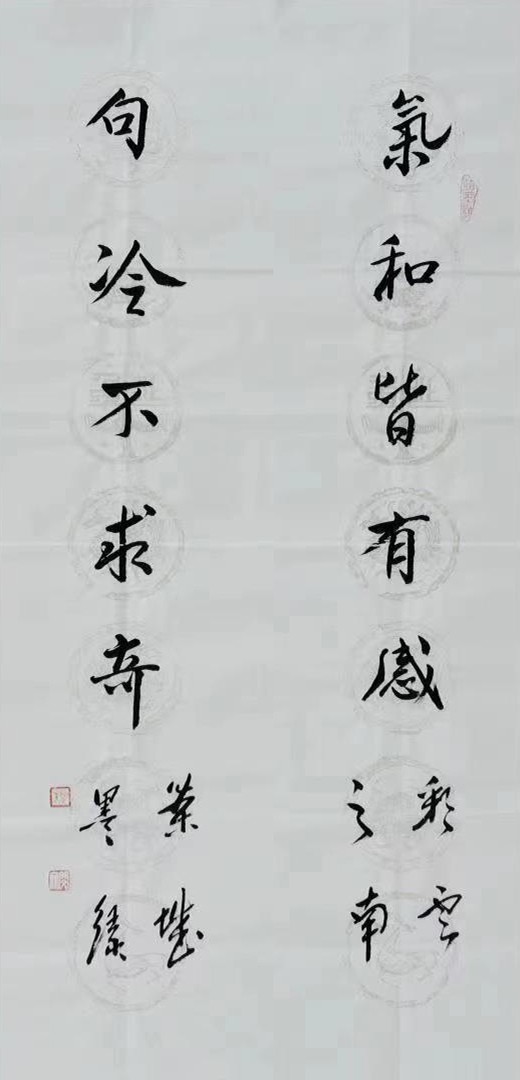 氣和皆有感
彩雲
之南
句冷不求奇
城
墨緣